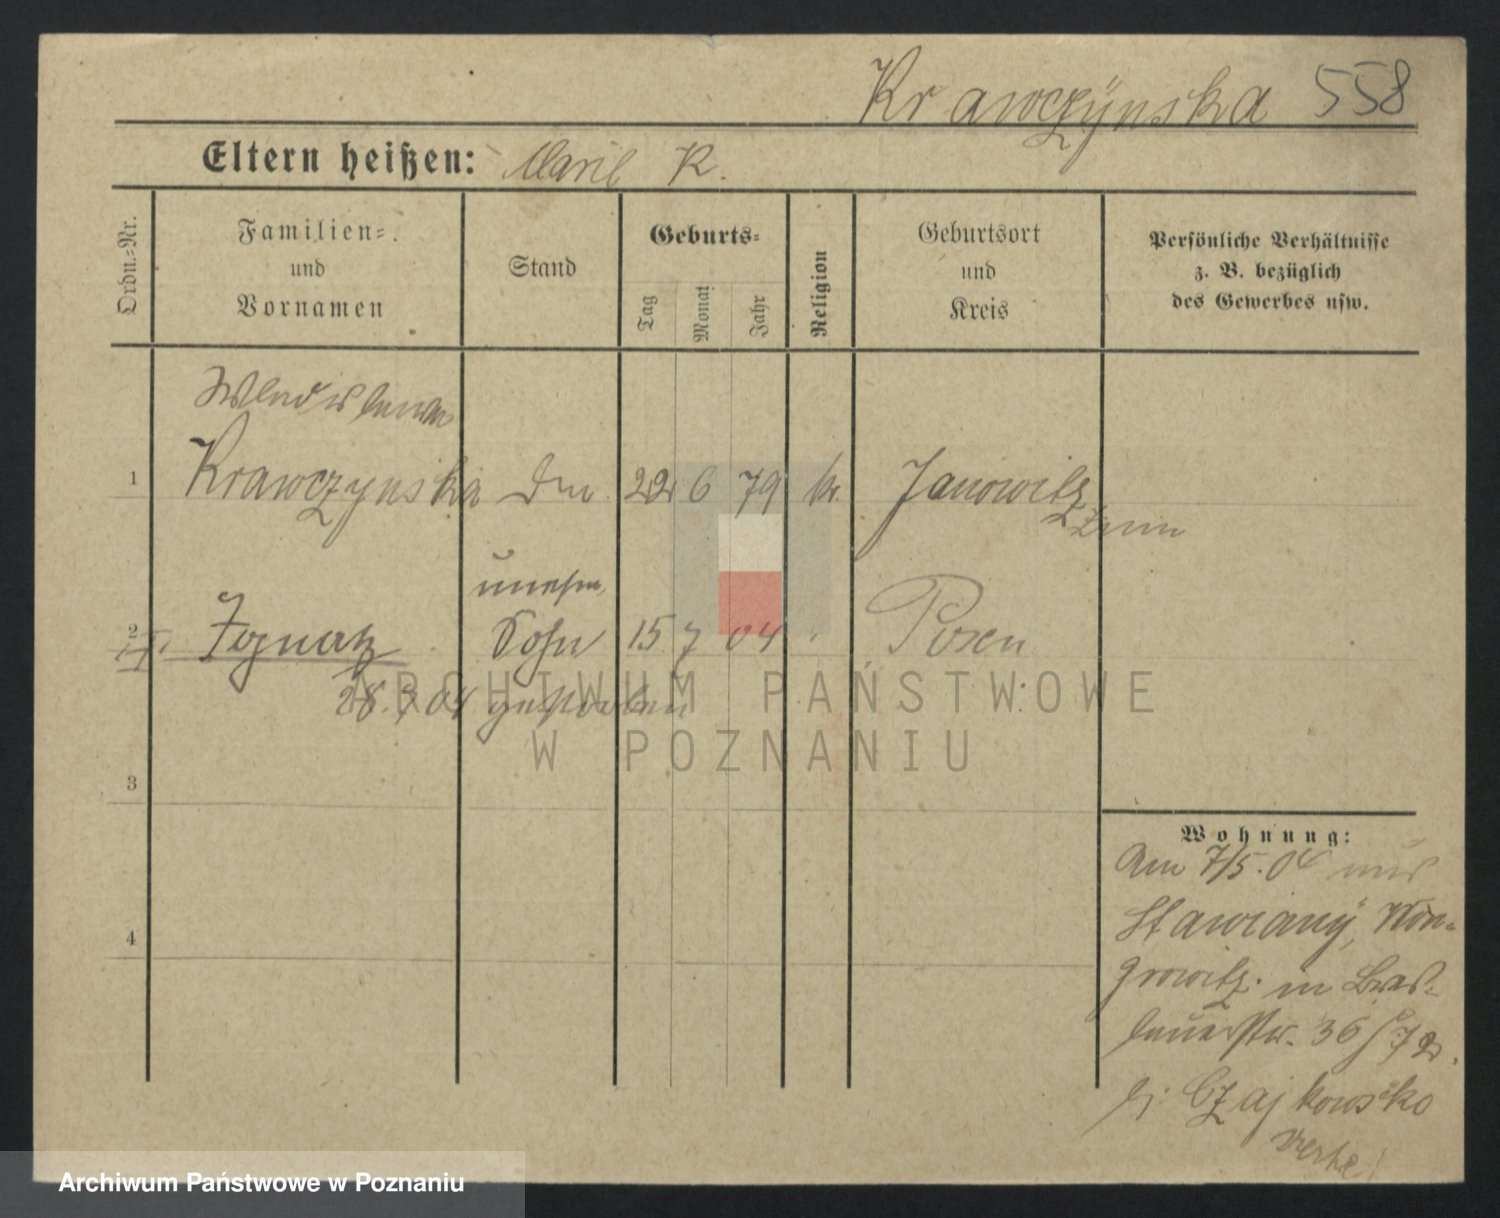 Krawczÿnska 558
Eltern heißen: K.
Ordn.-Nr.
Familien-
und
Vornamen
Stand
Geburts-
Tag
Monat
Jahr
Religion
Geburtsort
und
Kreis
Persönliche Verhältnisse
z. B. bezüglich
des Gewerbes usw.
Wladislawa
1 Krawczynska 22 6 79 k. Janowitz
Znin
unehl.
2 Ignatz Sohn 15 7 04 " Posen
gestorben
3
4
Wohnung:
Am 7/5. 04 aus
Stawiany, Won-
growitz. in Bres-
lauerstr. 36
bj. Czajkowsko
ARCHIWUM PAŃSTWOWE
W POZNANIU
Archiwum Państwowe w Poznaniu